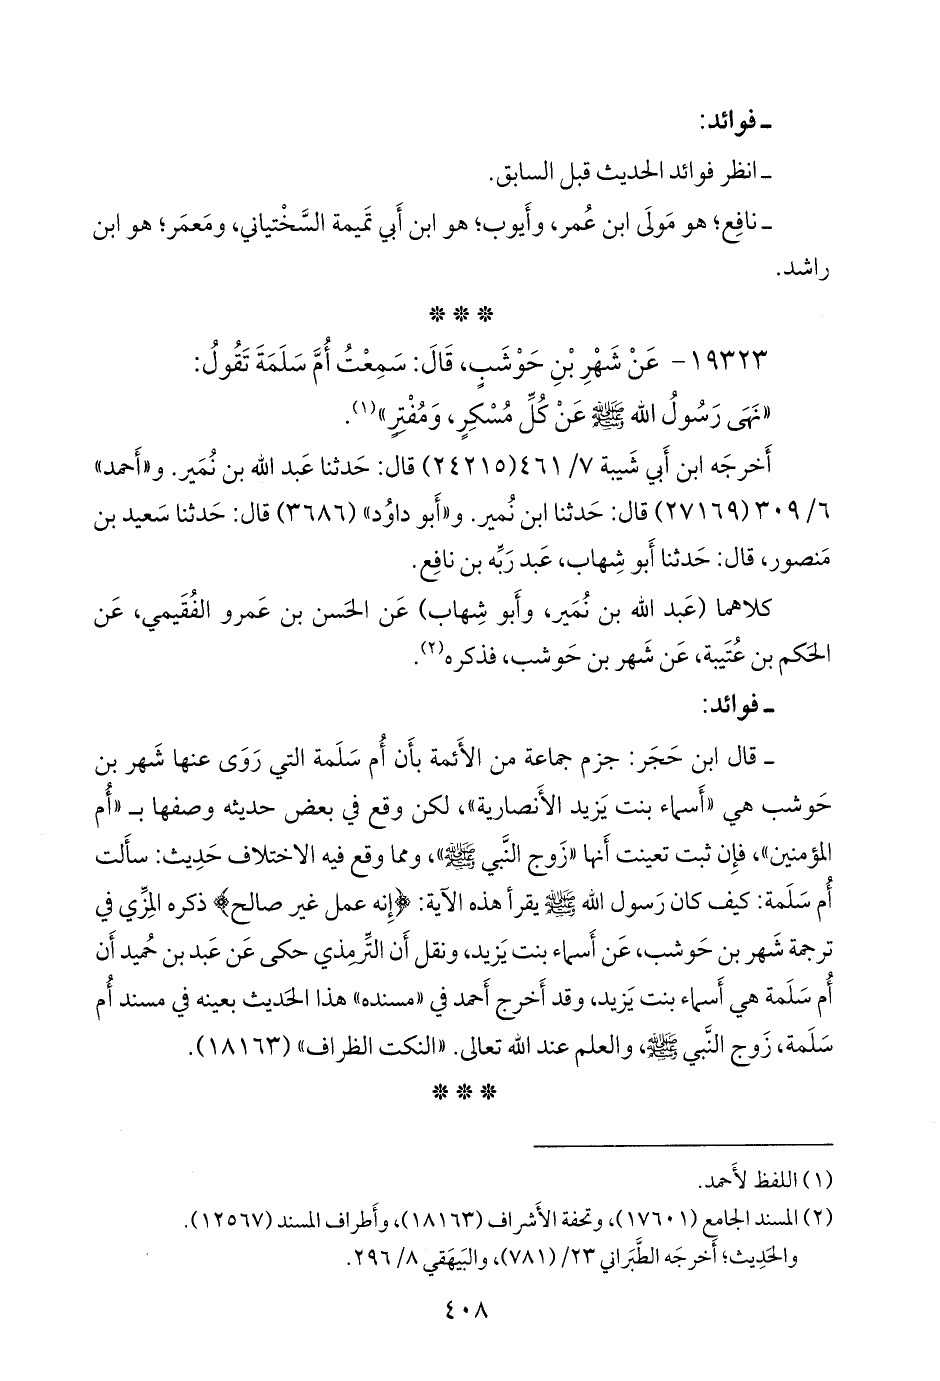 ـ فوائد:
ـ انظر فوائد الحديث قبل السابق.
ـ نافِع؛ هو مَولَى ابن عُمر، وأَيوب؛ هو ابن أَبي تَميمة السَّختياني، ومَعمَر؛ هو ابن
راشد.
***
١٩٣٢٣- عَنْ شَهْرِ بْنِ حَوْشَبٍ، قَالَ: سَمِعْتُ أُمَّ سَلَمَةَ تَقُولُ:
«نَهَى رَسُولُ الله ﷺ عَنْ كُلِّ مُسْكِرٍ، وَمُفْتِرٍ»(١).
أَخرجَه ابن أَبي شَيبة ٧/ ٤٦١(٢٤٢١٥) قال: حَدثنا عَبد الله بن نُمَير. و«أَحمد»
٦/ ٣٠٩ (٢٧١٦٩) قال: حَدثنا ابن نُمير. و«أَبو داوُد» (٣٦٨٦) قال: حَدثنا سَعيد بن
مَنصور، قال: حَدثنا أَبو شِهاب، عَبد رَبِّه بن نافِع.
كلاهما (عَبد الله بن نُمَير، وأَبو شِهاب) عَن الحَسن بن عَمرو الفُقَيمي، عَن
الحَكم بن عُتَيبة، عَن شَهر بن حَوشب، فذكره(٢).
ـ فوائد:
ـ قال ابن حَجَر: جزم جماعة من الأَئمة بأَن أُم سَلَمة التي رَوَى عنها شَهر بن
حَوشب هي «أَسماء بنت يَزيد الأَنصارية»، لكن وقع في بعض حديثه وصفها بـ «أُم
المؤمنين»، فإِن ثبت تعينت أَنها «زَوج النَّبي ﷺ»، ومما وقع فيه الاختلاف حَديث: سأَلت
أُم سَلَمة: كيف كان رَسول الله ﷺ يقرأ هذه الآية: ﴿إنه عمل غير صالح﴾ ذكره المِزِّي في
ترجمة شَهر بن حَوشب، عَن أَسماء بنت يَزيد، ونقل أَن التِّرمِذي حكى عَن عَبد بن حُميد أَن
أُم سَلَمة هي أَسماء بنت يَزيد، وقد أَخرج أَحمد في «مسنده» هذا الحَديث بعينه في مسند أُم
سَلَمة، زَوج النَّبي ﷺ، والعلم عند الله تعالى. «النكت الظراف» (١٨١٦٣).
***
(١) اللفظ لأَحمد.
(٢) المسند الجامع (١٧٦٠١)، وتحفة الأَشراف (١٨١٦٣)، وأَطراف المسند (١٢٥٦٧).
والحَديث؛ أَخرجَه الطَّبَراني ٢٣/ (٧٨١)، والبَيهَقي ٨/ ٢٩٦.
٤٠٨